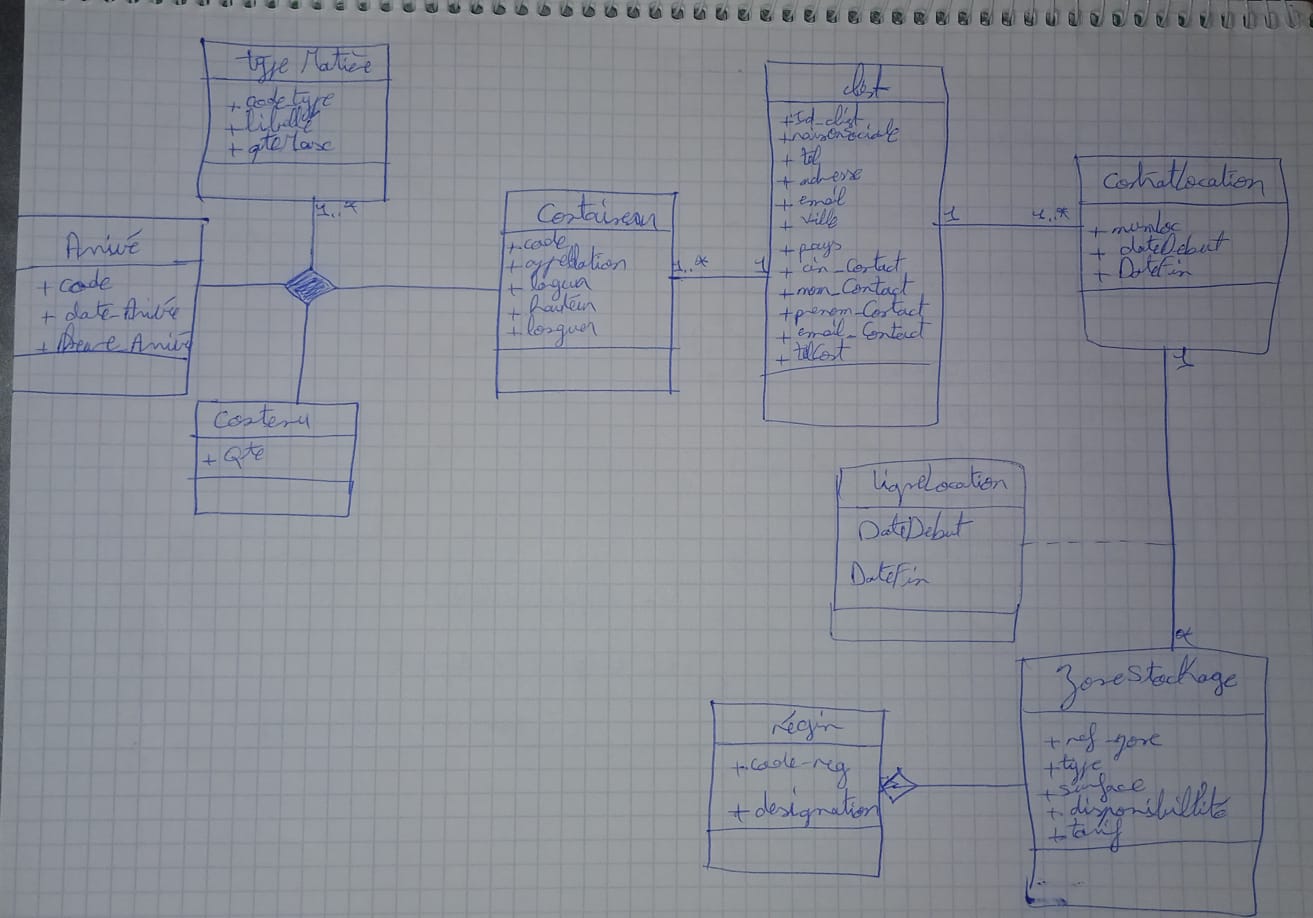 type Matière
+ code type
+ libellé
+ qteMax
1..*
Arrivé
+ code
+ date_Arivée
+ Heure_Arivé
Contenu
+ Qte
Containeur
+ code
+ appellation
+ largeur
+ hauteur
+ longueur
1..*
1
client
+ Id_client
+ raisonsociale
+ tel
+ adresse
+ email
+ ville
+ pays
+ cin_Contact
+ nom_Contact
+ prenom_Contact
+ email_Contact
+ telCont
1
1..*
ContratLocation
+ numloc
+ dateDebut
+ DateFin
1
ligneLocation
DateDebut
DateFin
*
ZoneStockage
+ ref-zone
+ type
+ surface
+ disponibillité
+ tarif
région
+ code-reg
+ designation